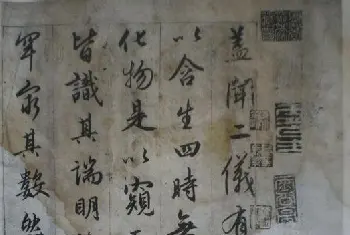 蓋聞二儀有
以含生四時無
化物是以窺
皆識其端明
罕窮其數然